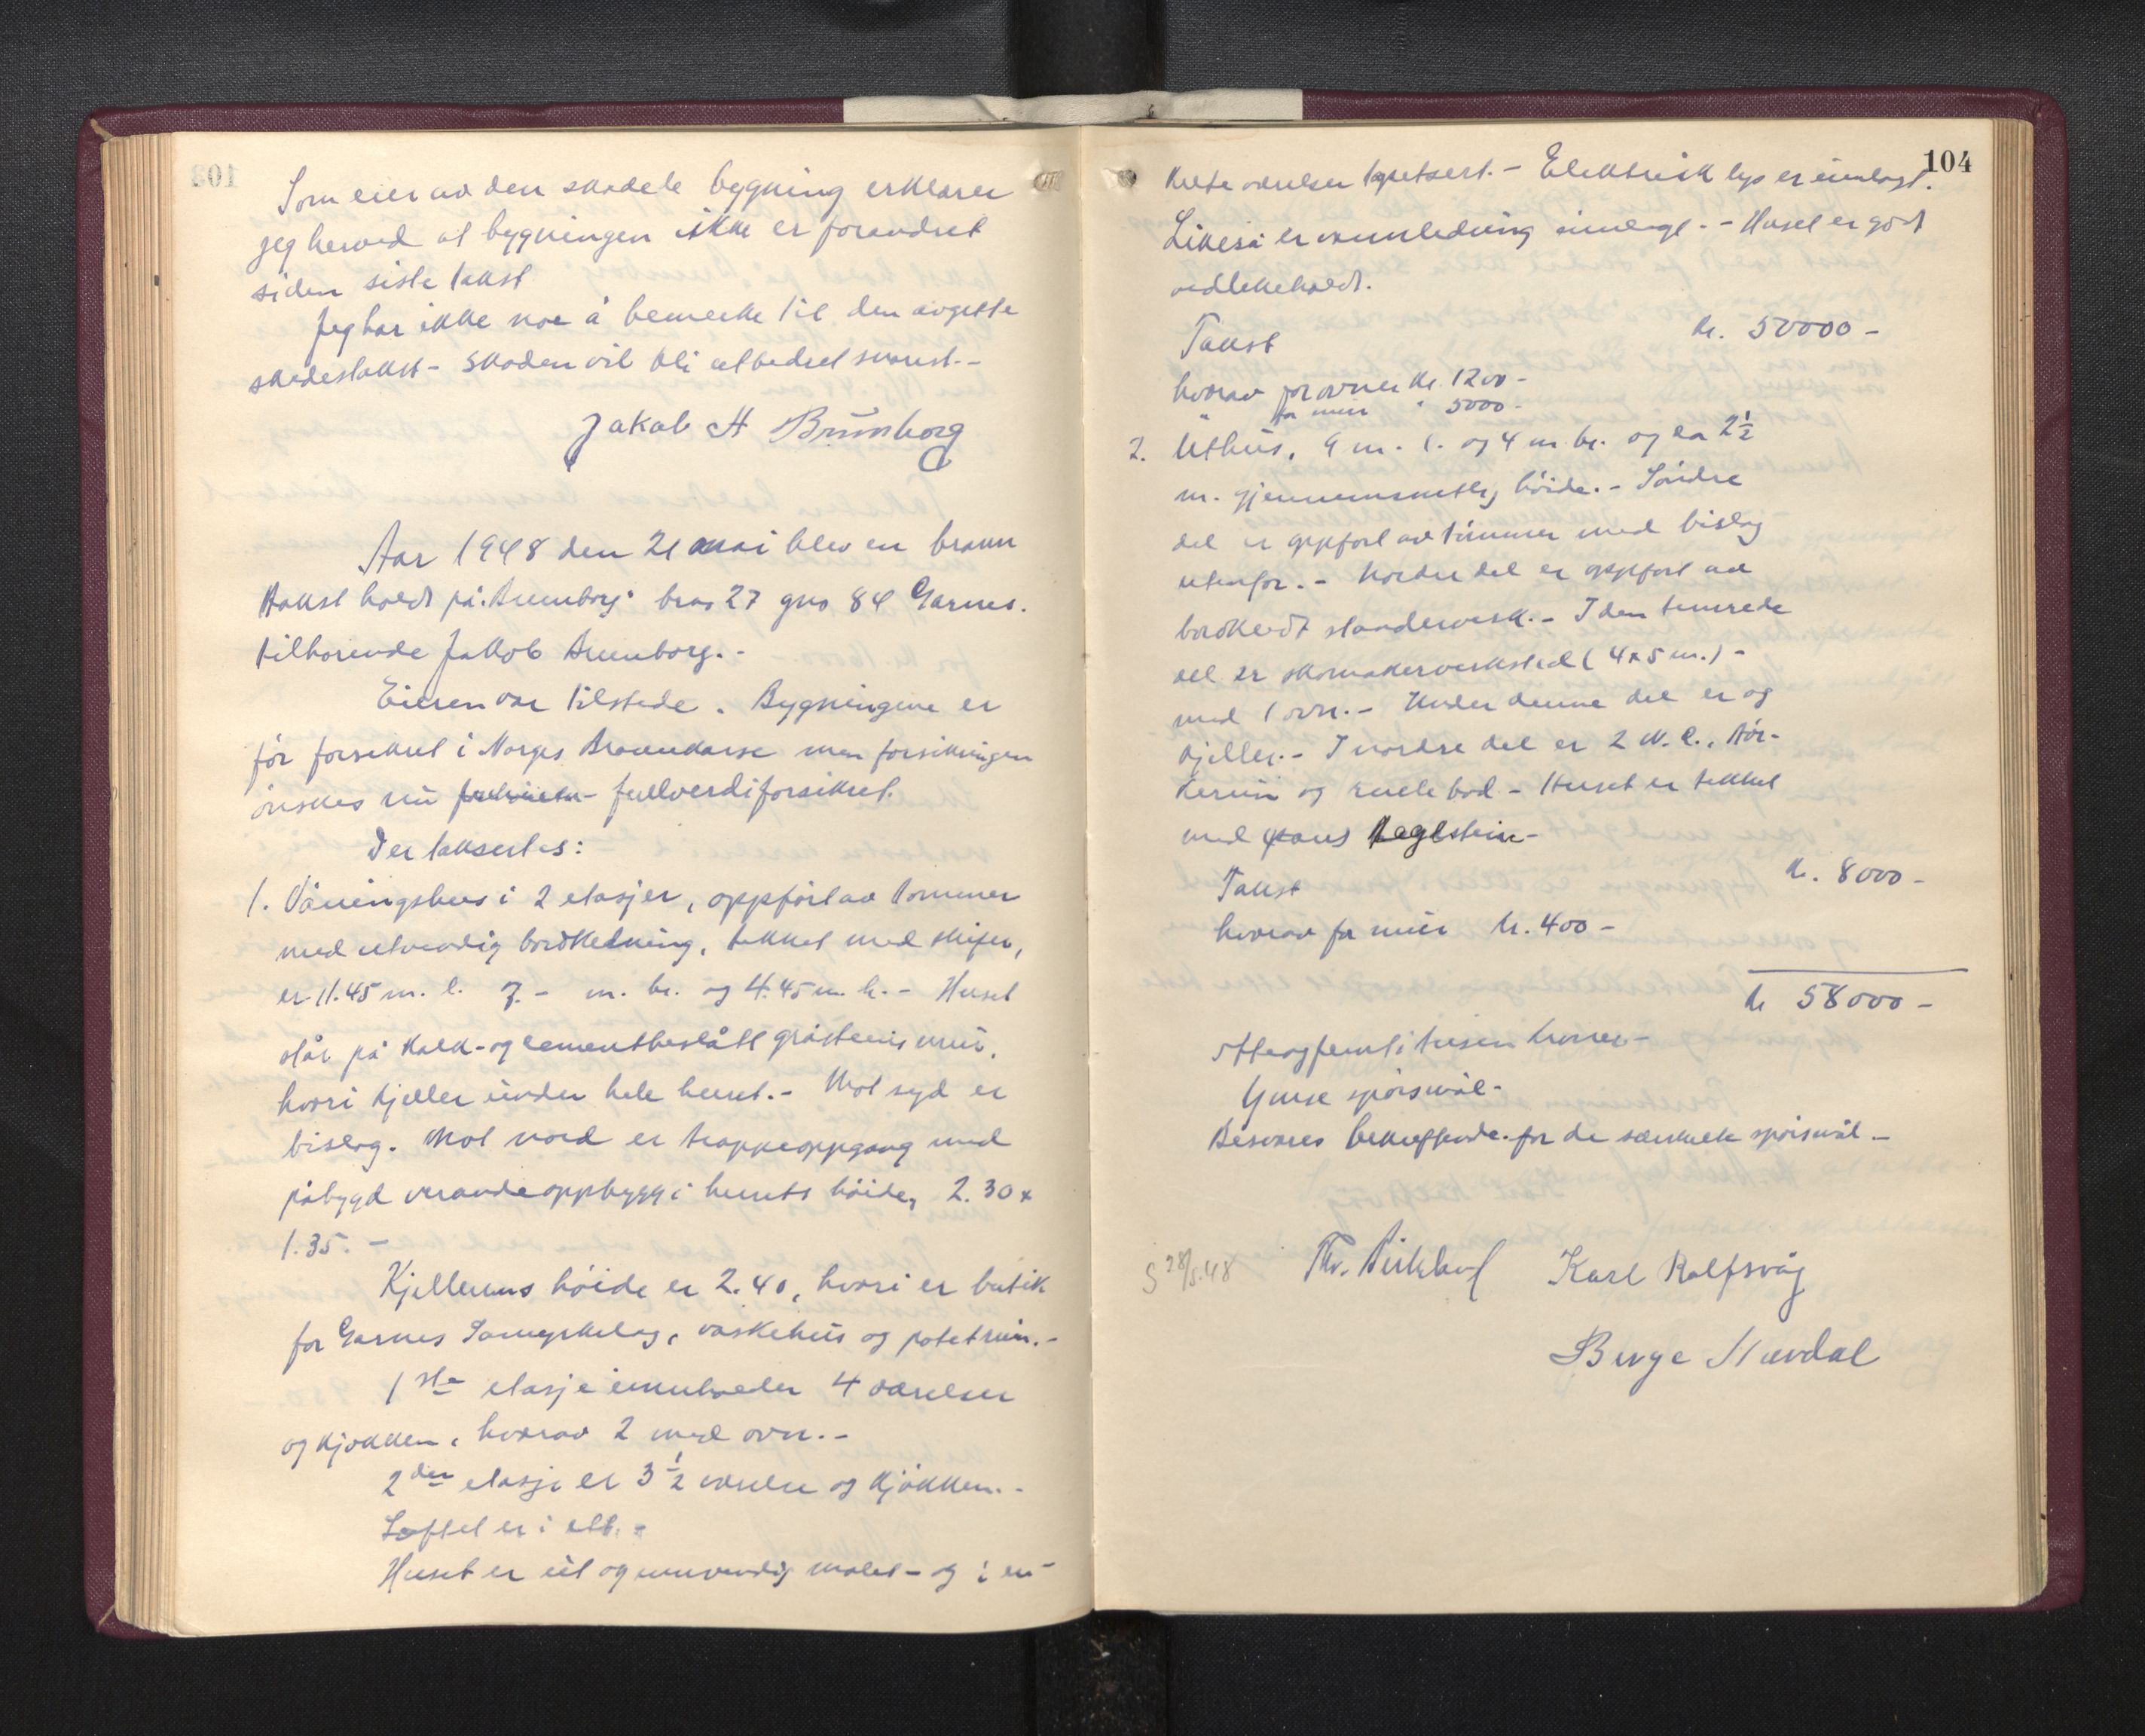 Som eier av den skadete bygning erklærer
jeg herved at bygningen ikke er forandret
siden siste takst
Jeg har ikke noe å bemerke til den avgitte
skadestakst - skaden vil bli utbedret snarest.-
Jakob H Brumborg
Aar 1948 den 21 mai blev en brann
takst holdt på "Brumborg" brno 27 gno 84 Garnes.
tilhørende Jakob Brumborg.-
Eieren var tilstede. Bygningene er
før forsikret i Norges Brannkasse men forsikringen
ønskes nu fullverdiforsikret.
Der taksertes:
1. Våningshus i 2 etasjer, oppført av tømmer
med utvendig bordkledning, tekket med skifer,
er 11.45 m. l. 7.- m. br. og 4.45 m. h.- Huset
står på kalk- og cementbeslått gråsteins mur,
hvori kjeller under hele huset.- Mot syd er
bislag. Mot nord er trappeoppgang med
påbygd verandaoppbygg i husets høide, 2.30 x
1.35.-
Kjellerens høide er 2.40, hvori er butik
for Garnes Samyrkelag, vaskehus og potetrum.-
1ste etasje inneholder 4 værelser
og kjøkken, hvorav 2 med ovn.-
2den etasje er 3 1/2 værelse og kjøkken.-
Loftet er i ett.-
Huset er ut og innvendig malet - og i en-
104
kelte værelser tapetsert.- Elektrisk lys er innlagt.
Likeså er vannledning innlagt.- Huset er godt
vedlikeholdt.
Takst kr. 50000 -
hvorav for ovner kr. 1200 -
" for mur " 5000 -
2. Uthus, 9 m. l. og 4 m. br. og ca 2 1/2
m. gjennemsnitlig høide.- Søndre
del er oppført av tømmer med bislag
utenfor.- Nordre del er oppført av
bordkledt standerverk.- I den tømrede
del er skomakerverksted (4x5 m.) -
med 1 ovn.- Under denne del er og
kjeller.- I nordre del er 2 W.C., tør-
kerum og redebod - Huset er tekket
med teglstein-
Takst kr. 8000 -
hvorav for mur kr. 400 -
kr 58000 -
Otteogfemti tusen kroner -
Ymse spørsmål -
Besvares bekreftende for de særskilte spørsmål -
S 28/5.48 Thv. Birkeland Karl Rolfsvåg
Børge Nævdal